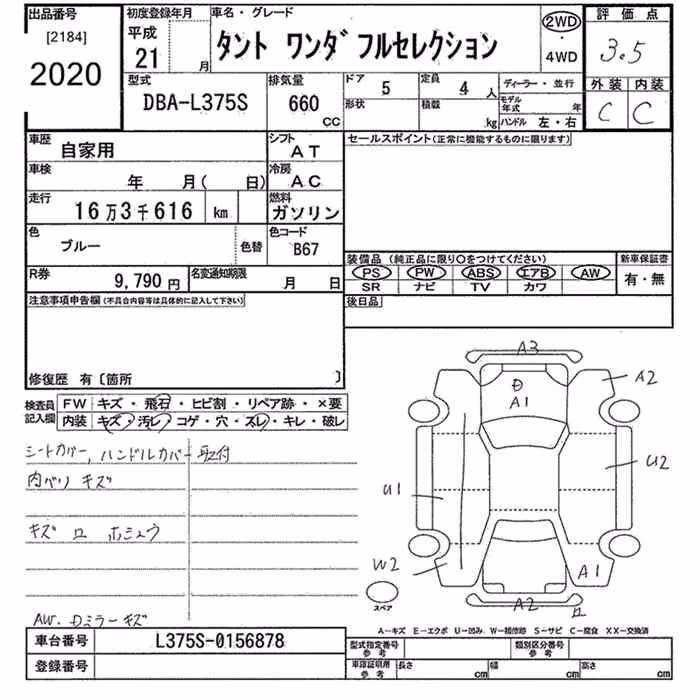 出品番号
[2184]
2020
初度登録年月
平成
21 月
車名・グレード
タント ワンダフルセレクション
2WD
・
4WD
評価点
3.5
外装 内装
C C
型式
DBA-L375S
排気量
660
CC
ドア 5
形状
定員 4 人
積載 kg
ディーラー・並行
モデル年式 年
ハンドル 左・右
車歴
自家用
シフト
AT
セールスポイント(正常に機能するものに限ります)
車検
年 月( 日)
冷房
AC
走行
16万3千616 km
燃料
ガソリン
色
ブルー
色替
色コード
B67
装備品(純正品に限り○をつけてください)
新車保証書
PS PW ABS エアB AW
有・無
SR ナビ TV カワ
R券
9,790 円
名変通知期限
月 日
後日品
注意事項申告欄(不具合内容等は具体的に記入して下さい)
修復歴 有〔箇所 〕
検査員
記入欄
FW キズ・飛石・ヒビ割・リペア跡・×要
内装 キズ・汚レ・コゲ・穴・スレ・キレ・破レ
シートカバー,ハンドルカバー取付
内ベリ キズ
キズ ロ ホシュウ
AW. Dミラーキズ
A3
D
A1
A2
U2
U1
W2
A1
A2
ロ
スペア
A-キズ E-エクボ U-凹み W-補修跡 S-サビ C-腐食 XX-交換済
車台番号 L375S-0156878
登録番号
型式指定番号
参考
類別区分番号
参考
車庫証明用
参考
長さ cm
幅 cm
高さ cm